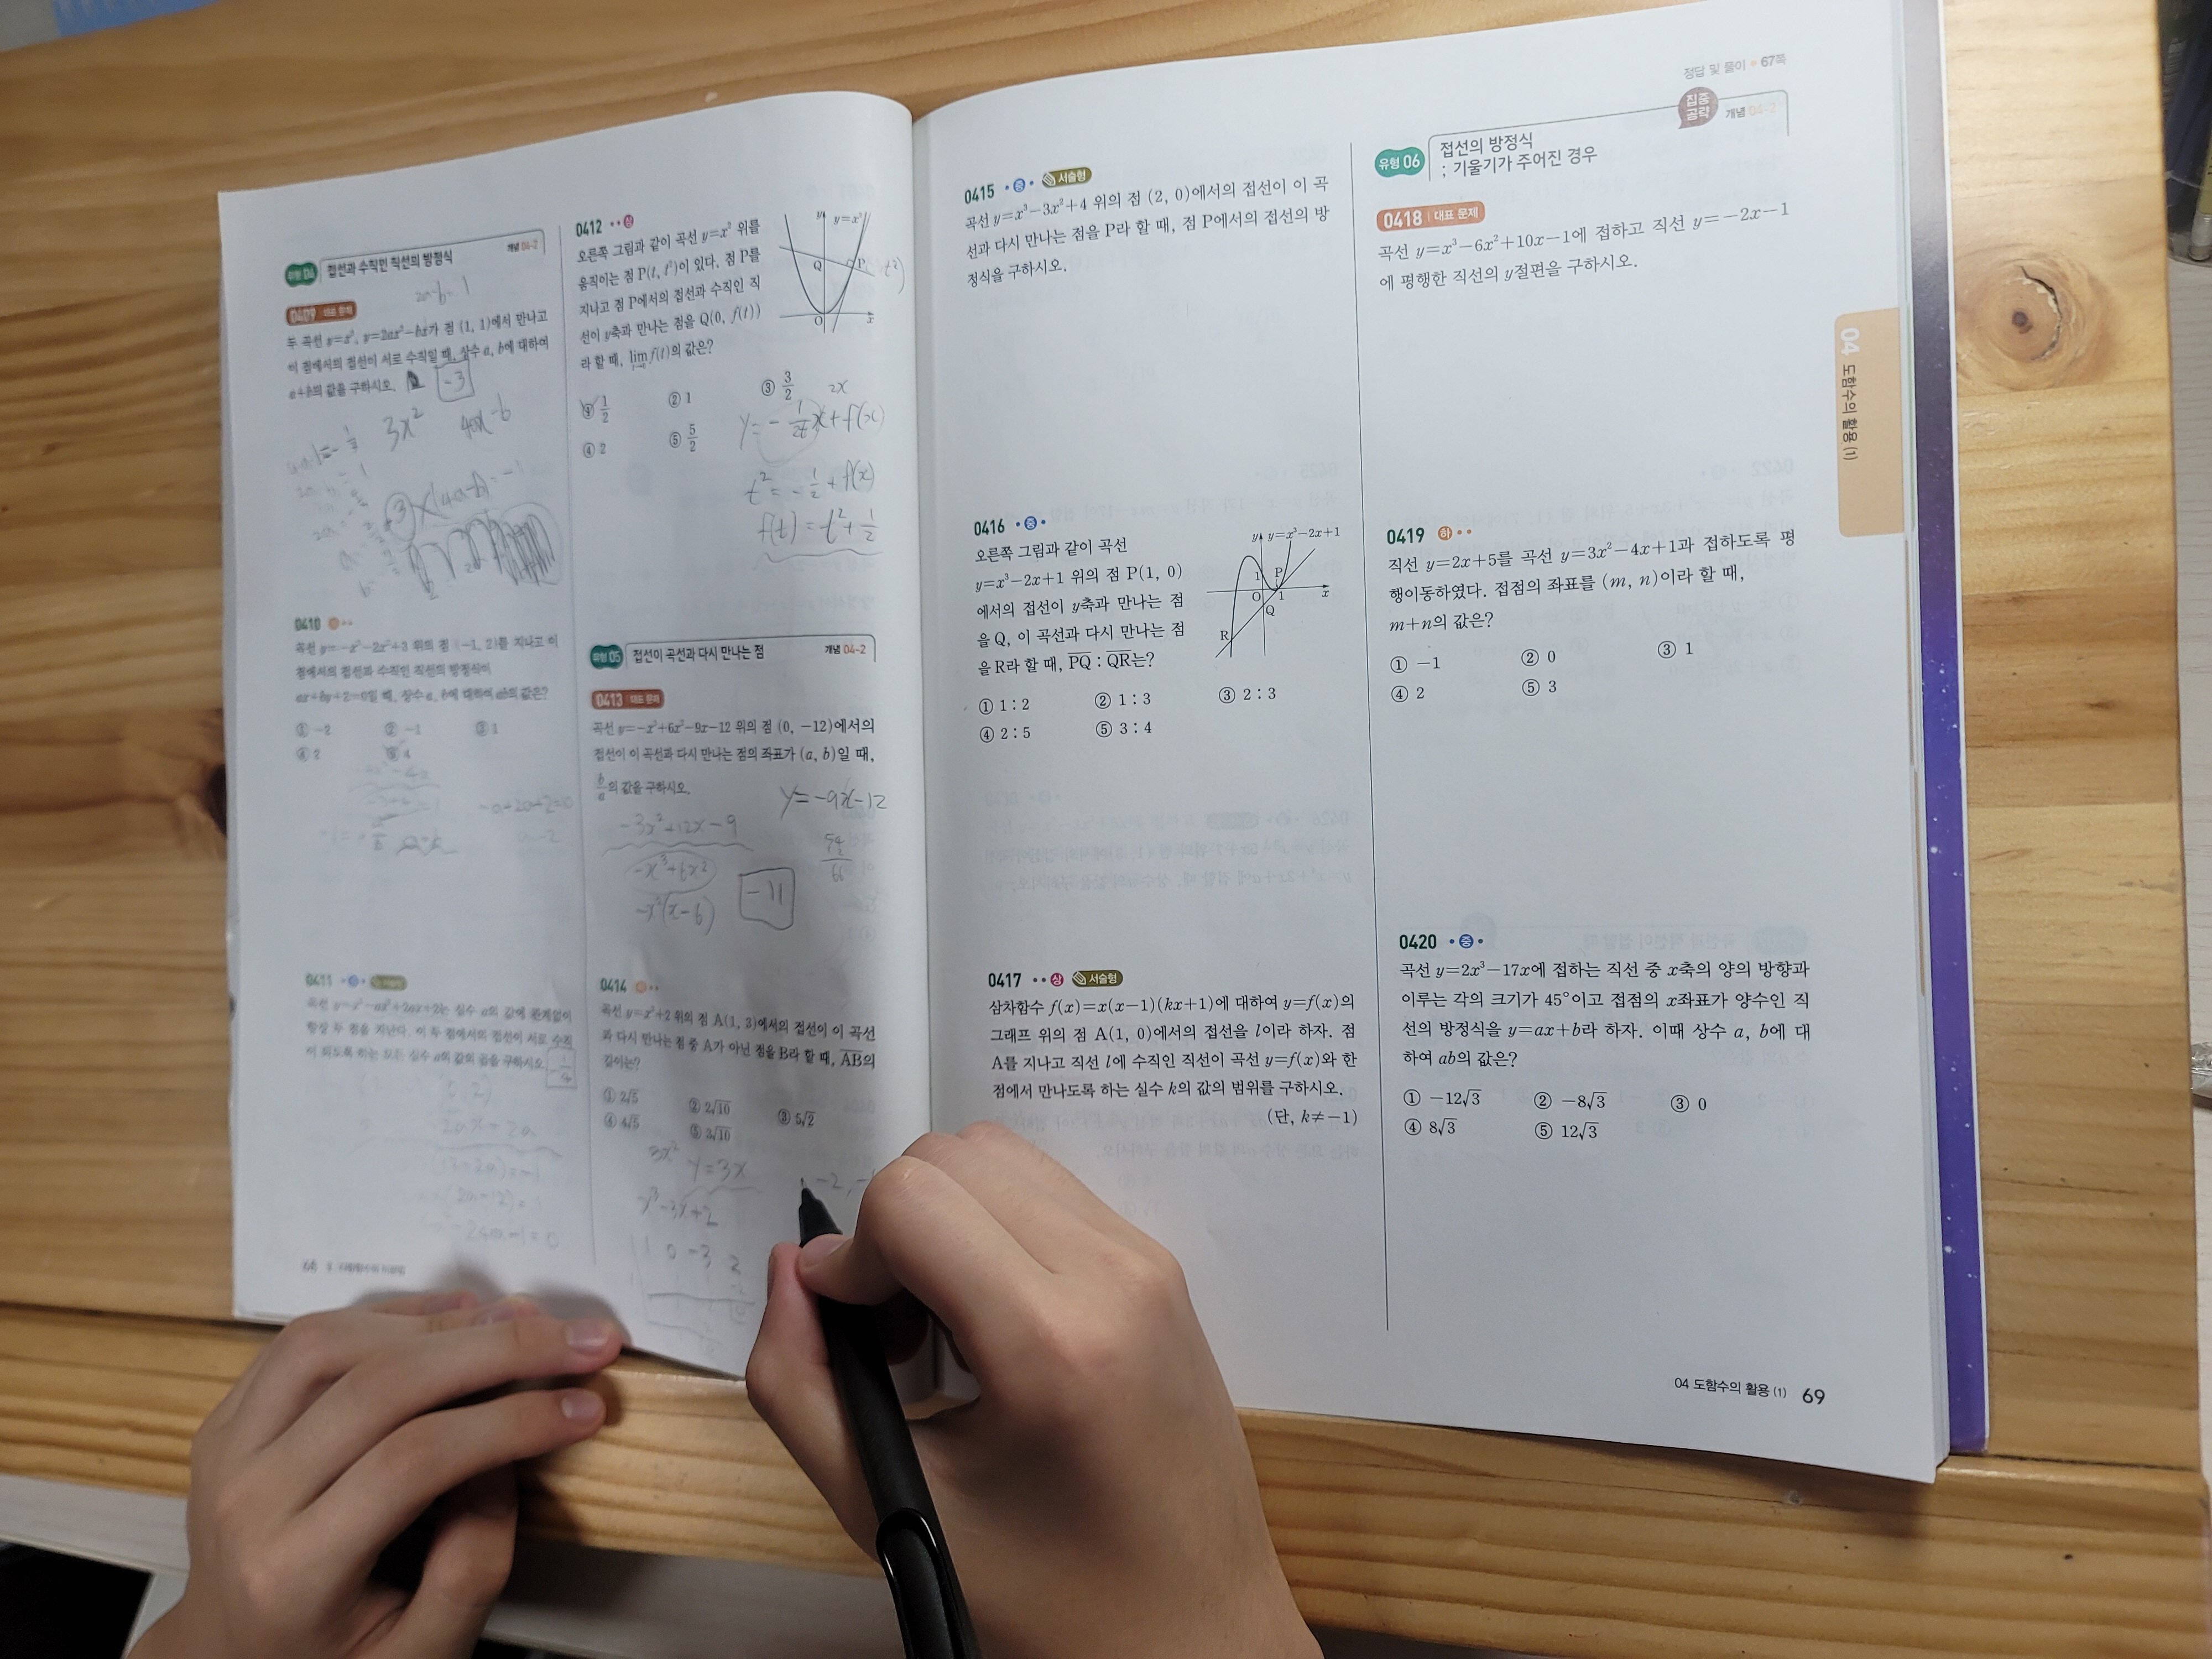 유형 04 접선과 수직인 직선의 방정식
개념 04-2
2a-b=1
0409 대표 문제
두 곡선 y=x³, y=2ax²-bx가 점 (1, 1)에서 만나고
이 점에서의 접선이 서로 수직일 때, 상수 a, b에 대하여
a+b의 값을 구하시오.
-3
3x² 4ax-b
0410
곡선 y=-x³-2x²+3 위의 점 (-1, 2)를 지나고 이
점에서의 접선과 수직인 직선의 방정식이
ax+by+2=0일 때, 상수 a, b에 대하여 ab의 값은?
① -2 ② -1 ③ 1
④ 2 ⑤ 4
0411
항상 두 점을 지난다. 이 두 점에서의 접선이 서로 수직
이 되도록 하는 모든 실수 a의 값의 곱을 구하시오.
0412 상
오른쪽 그림과 같이 곡선 y=x² 위를
움직이는 점 P(t, t²)이 있다. 점 P를
지나고 점 P에서의 접선과 수직인 직
선이 y축과 만나는 점을 Q(0, f(t))
라 할 때, lim f(t)의 값은?
y y=x²
Q P
O x
① 1/2 ② 1 ③ 3/2
④ 2 ⑤ 5/2
2x
y=-1/2t x+f(x)
t²=-1/2+f(x)
f(t)=t²+1/2
유형 05 접선이 곡선과 다시 만나는 점
개념 04-2
0413 대표 문제
곡선 y=-x³+6x²-9x-12 위의 점 (0, -12)에서의
접선이 이 곡선과 다시 만나는 점의 좌표가 (a, b)일 때,
b/a의 값을 구하시오.
y=-9x-12
-3x²+12x-9
-x³+6x²
-x²(x-6)
54
66
-11
0414
곡선 y=x³+2 위의 점 A(1, 3)에서의 접선이 이 곡선
과 다시 만나는 점 중 A가 아닌 점을 B라 할 때, AB의
길이는?
① 2√5 ② 2√10 ③ 5√2
④ 4√5 ⑤ 3√10
3x² y=3x
x³-3x+2
1 0 -3 2
정답 및 풀이 67쪽
0415 중 서술형
곡선 y=x³-3x²+4 위의 점 (2, 0)에서의 접선이 이 곡
선과 다시 만나는 점을 P라 할 때, 점 P에서의 접선의 방
정식을 구하시오.
0416 중
오른쪽 그림과 같이 곡선
y=x³-2x+1 위의 점 P(1, 0)
에서의 접선이 y축과 만나는 점
을 Q, 이 곡선과 다시 만나는 점
을 R라 할 때, PQ : QR는?
y y=x³-2x+1
1 P
O 1 x
Q
R
① 1 : 2 ② 1 : 3 ③ 2 : 3
④ 2 : 5 ⑤ 3 : 4
0417 상 서술형
삼차함수 f(x)=x(x-1)(kx+1)에 대하여 y=f(x)의
그래프 위의 점 A(1, 0)에서의 접선을 l이라 하자. 점
A를 지나고 직선 l에 수직인 직선이 곡선 y=f(x)와 한
점에서 만나도록 하는 실수 k의 값의 범위를 구하시오.
(단, k≠-1)
집중 공략
개념 04-2
유형 06 접선의 방정식
; 기울기가 주어진 경우
0418 대표 문제
곡선 y=x³-6x²+10x-1에 접하고 직선 y=-2x-1
에 평행한 직선의 y절편을 구하시오.
0419 하
직선 y=2x+5를 곡선 y=3x²-4x+1과 접하도록 평
행이동하였다. 접점의 좌표를 (m, n)이라 할 때,
m+n의 값은?
① -1 ② 0 ③ 1
④ 2 ⑤ 3
0420 중
곡선 y=2x³-17x에 접하는 직선 중 x축의 양의 방향과
이루는 각의 크기가 45°이고 접점의 x좌표가 양수인 직
선의 방정식을 y=ax+b라 하자. 이때 상수 a, b에 대
하여 ab의 값은?
① -12√3 ② -8√3 ③ 0
④ 8√3 ⑤ 12√3
04 도함수의 활용 (1)
04 도함수의 활용 (1) 69